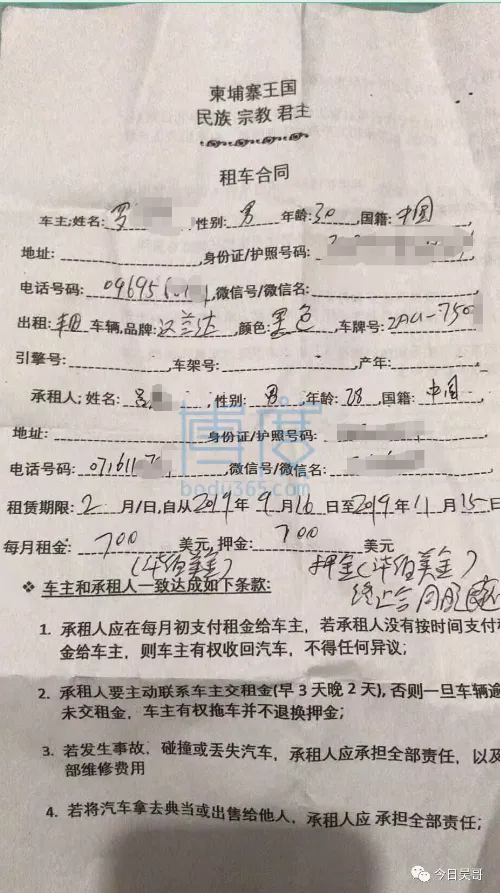 柬埔寨王国
民族 宗教 君主
租车合同
车主;姓名: 罗 ,性别: 男 年龄: 30 ,国籍: 中国
地址: ,身份证/护照号码:
电话号码: 09695 ,微信号/微信名:
出租: 丰田 车辆,品牌: 汉兰达 颜色: 黑色 车牌号: 2AU-750
引擎号: ,车架号: 产年:
承租人; 姓名: ,性别: 男 ,年龄: 28 ,国籍: 中国
地址: 身份证/护照号码:
电话号码: 071611 ,微信号/微信名:
租赁期限: 2 月/日,自从 2019 年 9 月 16 日至 2019 年 11 月 15 日
每月租金: 700 美元, 押金: 700 美元
(柒佰美金) 押金(柒佰美金)
终止合同
❖ 车主和承租人一致达成如下条款:
1. 承租人应在每月初支付租金给车主，若承租人没有按时间支付租
金给车主，则车主有权收回汽车，不得任何异议;
2. 承租人要主动联系车主交租金(早 3 天晚 2 天), 否则一旦车辆逾
未交租金，车主有权拖车并不退换押金;
3. 若发生事故，碰撞或丢失汽车，承租人应承担全部责任，以及
部维修费用
4. 若将汽车拿去典当或出售给他人，承租人应 承担全部责任;
博度
bodu365.com
今日吴哥